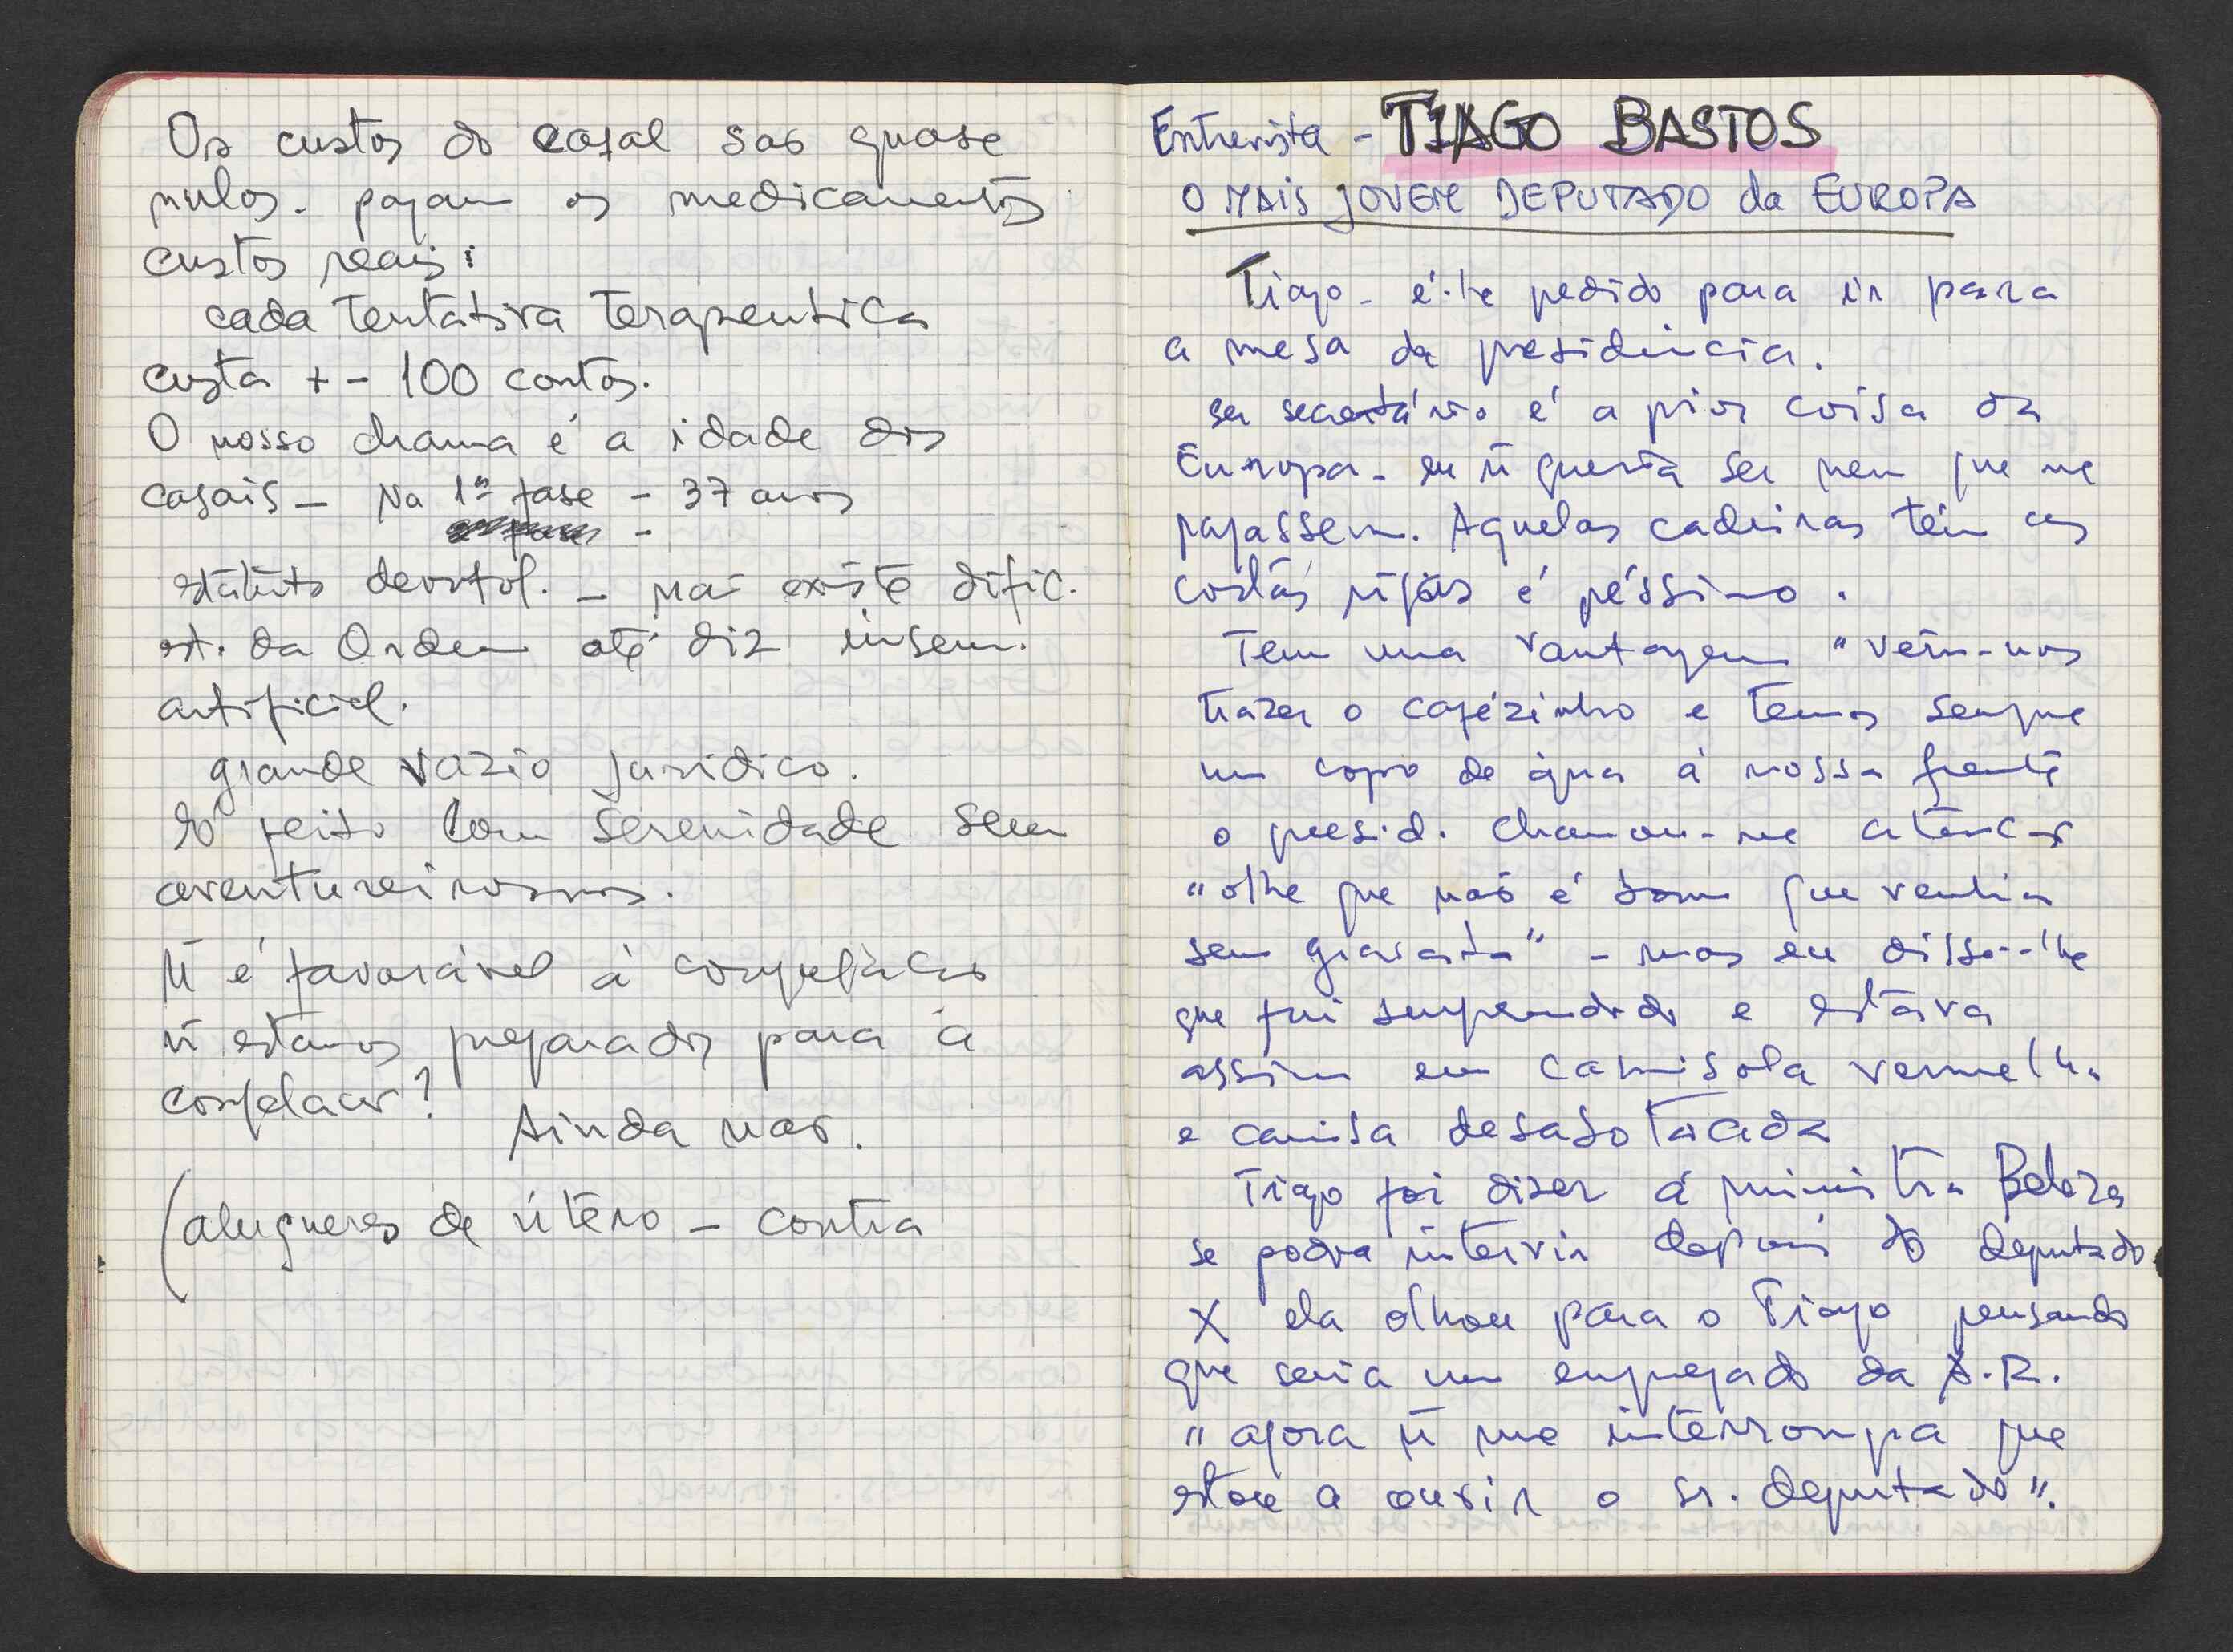 Os custos do casal sao quase
nulos. pagam os medicamentos
custos reais:
cada tentativa terapeutica
custa + - 100 contos.
O nosso drama é a idade dos
casais - Na 1ª fase - 37 anos
-
estatuto deontol. - não existe dific.
est. da Ordem até diz insem.
artificial.
grande vazio juridico.
Só feito com serenidade sem
aventureirismos.
ñ é favorável à congelação
ñ estamos preparados para a
congelaçao?
Ainda nao.
(alugueres de útero - contra
Entrevista - TIAGO BASTOS
O MAIS JOVEM DEPUTADO da EUROPA
Tiago - é-lhe pedido para ir para
a mesa da presidência.
ser secretário é a pior coisa da
Europa - eu ñ queria ser nem que me
pagassem. Aquelas cadeiras têm as
costas rijas é péssimo.
Tem uma vantagem "vêm-nos
trazer o cafézinho e temos sempre
um copo de água à nossa frente
o presid. chamou-me atencao
"olhe que não é bom que venha
sem gravata" - mas eu disse-lhe
que fui surpreendido e estava
assim em camisola vermelha
e camisa desabotoada
Tiago foi dizer à ministra Beleza
se podia intervir depois do deputado
X ela olhou para o Tiago pensando
que seria um empregado da A.R.
"agora ñ me interrompa que
estou a ouvir o sr. deputado".